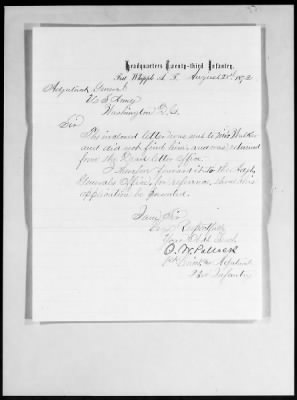 Headquarters Twenty-third Infantry,
Fort Whipple A. T. August 21st 1872
Adjutant General
U S Army
Washington D. C.
Sir
The inclosed letter was sent to Mr. Walker
and did not find him, and was returned
from the Dead Letter Office.
I therefore forward it to the Adjt.
Generals Office, for reference, should his
application be presented.
I am Sir
Very Respectfully
Your Obdt Servt
O. W. Pollock
1st Lieut. & Adjutant
23rd Infantry